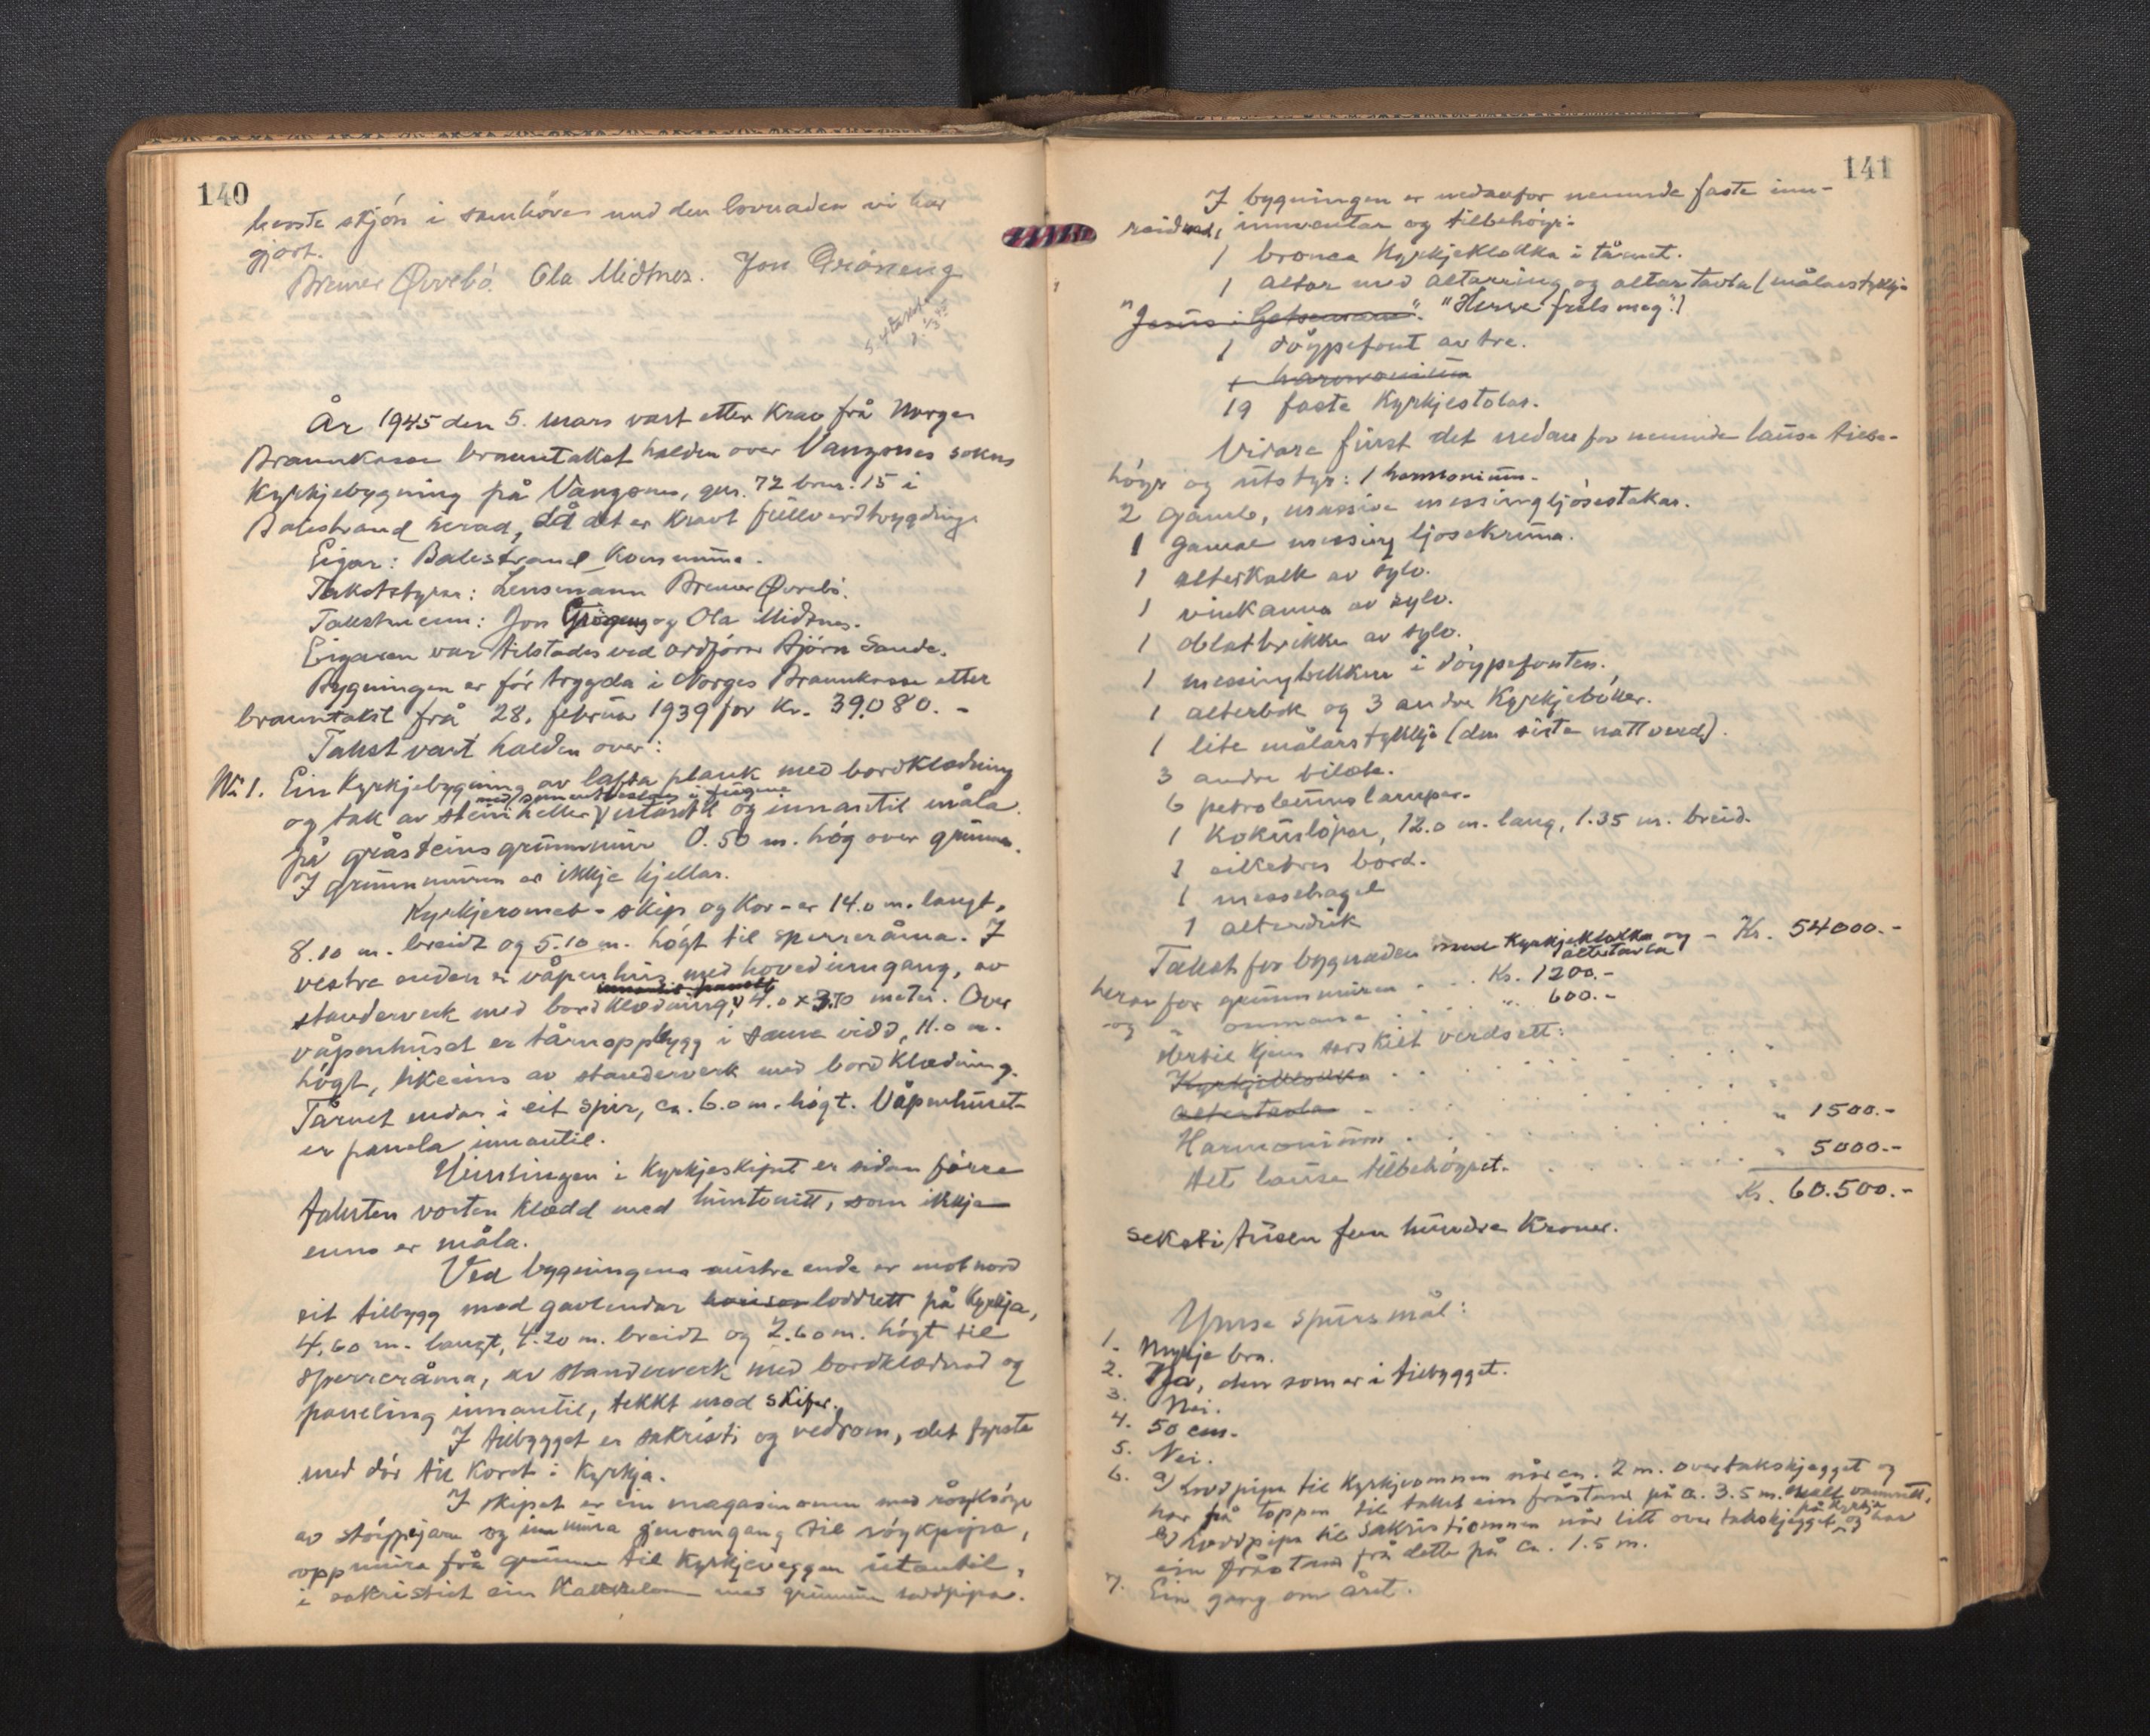 140
beste skjøn i samhøve med den lovnaden vi har
gjort.
Bremer Øvrebø. Ola Midtnes. Jon Grøneng
År 1945 den 5. mars vart etter krav frå Norges
Brannkasse branntakst halden over Vangsnes sokns
kyrkjebygning på Vangsnes, gnr. 72 brnr. 15 i
Balestrand herad, då det er kravt fullverdtrygding.
Eigar: Balestrand Kommune.
Takststyrar: Lensmann Bremer Øvrebø.
Takstmenn: Jon Grøneng og Ola Midtnes.
Eigaren var tilstades ved ordførar Bjørn Sande.
Bygningen er før trygda i Norges Brannkasse etter
branntakst frå 28. februar 1939 for kr. 39.080.-
Takst vart halden over:
Nr. 1. Ein kyrkjebygning av lafta plank med bordklædning
og tak av steinheller utantil og innantil måla
på gråsteinsgrunnmur 0.50 m. høg over grunnen.
I grunnmuren er ikkje kjellar.
Kyrkjeromet - skip og kor - er 14.0 m. langt,
8.10 m. breidt og 5.10 m. høgt til sperreråma. I
vestre enden er våpenhus med hovedinngang, av
standerverk med bordklædning, 4.0 x 3.70 meter. Over
våpenhuset er tårnoppbygg i same vidd, 11.0 m.
høgt, likeeins av standerverk med bordklædning.
Tårnet endar i eit spir, ca. 6.0 m. høgt. Våpenhuset
er panela innantil.
Himlingen i kyrkjeskipet er sidan førre
taksten vorten klædd med huntonitt, som ikkje
enno er måla.
Ved bygningens austre ende er mot nord
eit tilbygg med gavlendar loddrett på kyrkja,
4.60 m. langt, 4.20 m. breidt og 2.60 m. høgt til
sperreråma, av standerverk med bordklædnad og
paneling innantil, tekkt med skifer.
I tilbygget er sakristi og vedrom, det fyrste
med dør til koret i kyrkja.
I skipet er ein magasinomn med
av støypejarn og inn mura gjenomgang til røykpipa,
oppmura frå grunnen til kyrkjeveggen utantil,
i sakristiet ein med grunnmura loddpipa.
141
I bygningen er nedanfor nemnde faste inn-
reidnad, inventar og tilbehøyr:
1 bronce kyrkjeklokka i tårnet.
1 altar med altarring og altartavla (målarstykkje
"Jesus i Getsemane". "Herre frels meg".)
1 døypefont av tre.
1 harmonium
19 faste kyrkjestolar.
Vidare finst det nedanfor nemnde lause tilbe-
høyr og utstyr: 1 harmonium.
2 gamle, massive messingljosestakar.
1 gamal messing ljosekruna.
1 alterkalk av sylv.
1 vinkanna av sylv.
1 oblatbrikke av sylv.
1 messingbekken i døypefonten.
1 alterbok og 3 andre kyrkjebøker.
1 lite målarstykkje (den siste nattverd).
3 andre bilete.
6 petroleumslamper.
1 kokusløpar, 12.0 m. lang, 1.35 m. breid.
1 eiketres bord.
1 messehagel
1 alterduk
Takst for bygnaden med kyrkjeklokka og altertavla - Kr. 54000.-
herav for grunnmuren . . . Kr. 1200.-
og " omnane . . . " 600.-
Hertil kjem særskilt verdsett:
Kyrkjeklokka
Altertavla
Harmonium . . . " 1500.-
Alt lause tilbehøyret. . . . " 5000.-
Kr. 60.500.-
seksti tusen fem hundre kroner.
Ymse spursmål:
1. Mykje bra.
2. Ja, den som er i tilbygget.
3. Nei.
4. 50 cm.
5. Nei.
6. a) Loddpipa til kyrkjeomnen når ca. 2 m. over takskjegget og
har frå toppen til taket ein fråstand på ca. 3.5 m. målt vannrett.
b) Loddpipa til sakristiomnen når litt over takskjegget på kyrkja og har
ein fråstand frå dette på ca. 1.5 m.
7. Ein gang om året.